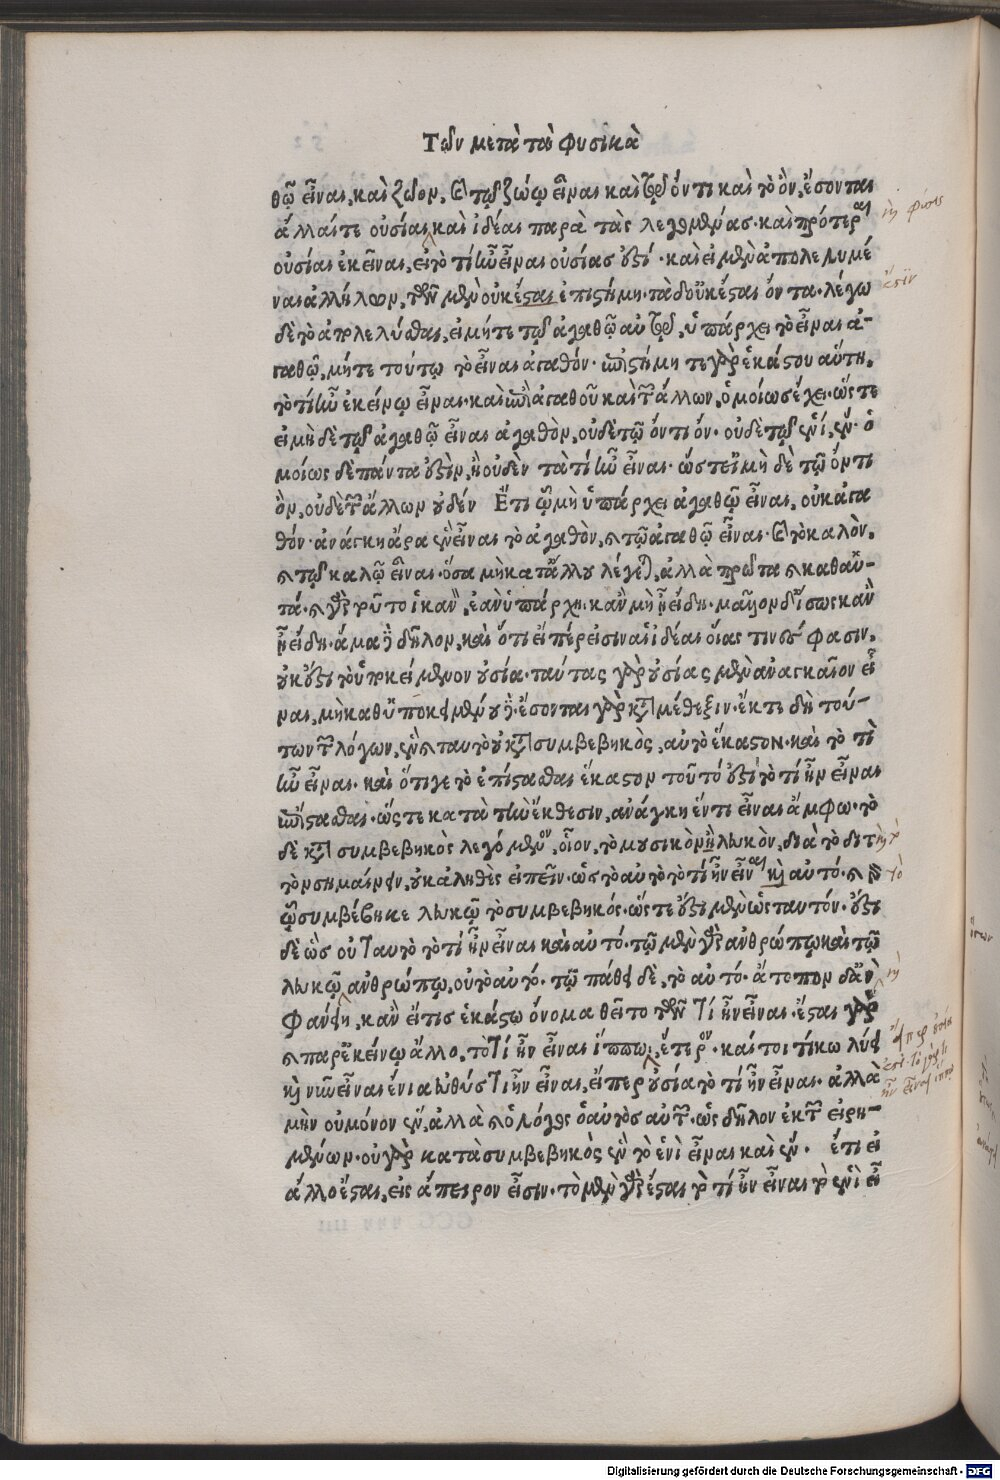 Τῶν μετὰ τὰ φυσικὰ
θῷ εἶναι, καὶ ζῶον, καὶ τῷ ζώῳ εἶναι καὶ τῷ ὄντι καὶ τὸ ὂν, ἔσονται
ἄλλαί τε οὐσίαι, καὶ ἰδέαι παρὰ τὰς λεγομένας. καὶ πρότεραι
οὐσίαι ἐκεῖναι, εἰ τὸ τί ἦν εἶναι οὐσίας ἐστί. καὶ εἰ μὲν ἀπολελυμέ
ναι ἀλλήλων, τῶν μὲν οὐκ ἔσται ἐπιστήμη. τὰ δ' οὐκ ἔσται ὄντα. λέγω
δὲ τὸ ἀπολελύσθαι, εἰ μήτε τῷ ἀγαθῷ αὐτῷ, ὑπάρχει τὸ εἶναι ἀ-
γαθῷ, μήτε τούτῳ τὸ εἶναι ἀγαθόν. ἐπιστήμη τε γὰρ ἑκάστου αὕτη,
τὸ τί ἦν ἐκείνῳ εἶναι. καὶ ἐπὶ ἀγαθοῦ καὶ τῶν ἄλλων, ὁμοίως ἔχει. ὥστε
εἰ μὴ δὲ τῷ ἀγαθῷ εἶναι ἀγαθὸν, οὐδὲ τῷ ὄντι ὄν. οὐδὲ τῷ ἑνὶ, ἕν. ὁ
μοίως δὲ πάντα ἐστὶν, ἢ οὐδὲν τὰ τί ἦν εἶναι. ὥστ' εἰ μὴ δὲ τῷ ὄντι
ὂν, οὐδὲ τῶν ἄλλων οὐδέν Ἔτι ᾧ μὴ ὑπάρχει ἀγαθῷ εἶναι, οὐκ ἀγα
θόν. ἀνάγκη ἄρα ἓν εἶναι τὸ ἀγαθὸν, καὶ τῷ ἀγαθῷ εἶναι. καὶ τὸ καλὸν,
καὶ τῷ καλῷ εἶναι. ὅσα μὴ κατ' ἄλλου λέγεται, ἀλλὰ πρῶτα καὶ καθ' αὑ-
τά. καὶ γὰρ τοῦτο ἱκανὸν, ἐὰν ὑπάρχη. κἂν μὴ ᾖ εἴδη. μᾶλλον δ' ἴσως κἂν
ᾖ εἴδη. ἅμα δὲ δῆλον, καὶ ὅτι εἴπερ εἰσιν αἱ ἰδέαι οἵας τινές φασιν,
οὐκ ἔστι τὸ ὑποκείμενον οὐσία. ταύτας γὰρ οὐσίας μὲν ἀναγκαῖον εἶ
ναι, μὴ καθ' ὑποκειμένου δέ. ἔσονται γὰρ κατὰ μέθεξιν. ἔκ τε δὴ τού-
των τῶν λόγων, ἓν καὶ ταυτὸ οὐ κατὰ συμβεβηκὸς, αὐτὸ ἕκαστον. καὶ τὸ τί
ἦν εἶναι. καὶ ὅτι γε τὸ ἐπίστασθαι ἕκαστον τοῦτό ἐστι τὸ τί ἦν εἶναι
ἐπίστασθαι. ὥστε κατὰ τὴν ἔκθεσιν, ἀνάγκη ἕν τι εἶναι ἄμφω. τὸ
δὲ κατὰ συμβεβηκὸς λεγόμενον, οἷον, τὸ μουσικὸν ἢ λευκὸν, διὰ τὸ διτ
τὸν σημαίνειν, οὐκ ἀληθὲς εἰπεῖν. ὡς τὸ αὐτὸ τὸ τί ἦν εἶναι καὶ αὐτό. καὶ γὰρ
ᾧ συμβέβηκε λευκῷ τὸ συμβεβηκός. ὥστε ἔστι μὲν ὡς ταυτόν. ἔστι
δὲ ὡς οὐ ταυτὸ τὸ τί ἦν εἶναι καὶ αὐτό. τῷ μὲν γὰρ ἀνθρώπῳ καὶ τῷ
λευκῷ ἀνθρώπῳ, οὐ τὸ αὐτό. τῷ πάθει δὲ, τὸ αὐτό. ἄτοπον δ' ἂν
φανείη, κἂν εἴ τις ἑκάστῳ ὄνομα θεῖτο τῶν τί ἦν εἶναι. ἔσται γὰρ
καὶ παρ' ἐκείνῳ ἄλλο, τὸ τί ἦν εἶναι ἵππῳ, ἕτερον. καί τοι τί κωλύει
καὶ νῦν εἶναι ἔνια εὐθὺς τί ἦν εἶναι, εἴπερ οὐσία τὸ τί ἦν εἶναι. ἀλλὰ
μὴν οὐ μόνον ἓν, ἀλλὰ καὶ ὁ λόγος ὁ αὐτὸς αὐτῶν. ὡς δῆλον ἐκ τῶν εἰρη-
μένων. οὐ γὰρ κατὰ συμβεβηκὸς ἓν τὸ ἑνὶ εἶναι καὶ ἕν. ἔτι εἰ
ἄλλο ἔσται, εἰς ἄπειρον εἶσιν. τὸ μὲν γὰρ ἔσται τὸ τί ἦν εἶναι τὸ ἑνὶ εἶ
Digitalisierung gefördert durch die Deutsche Forschungsgemeinschaft - DFG